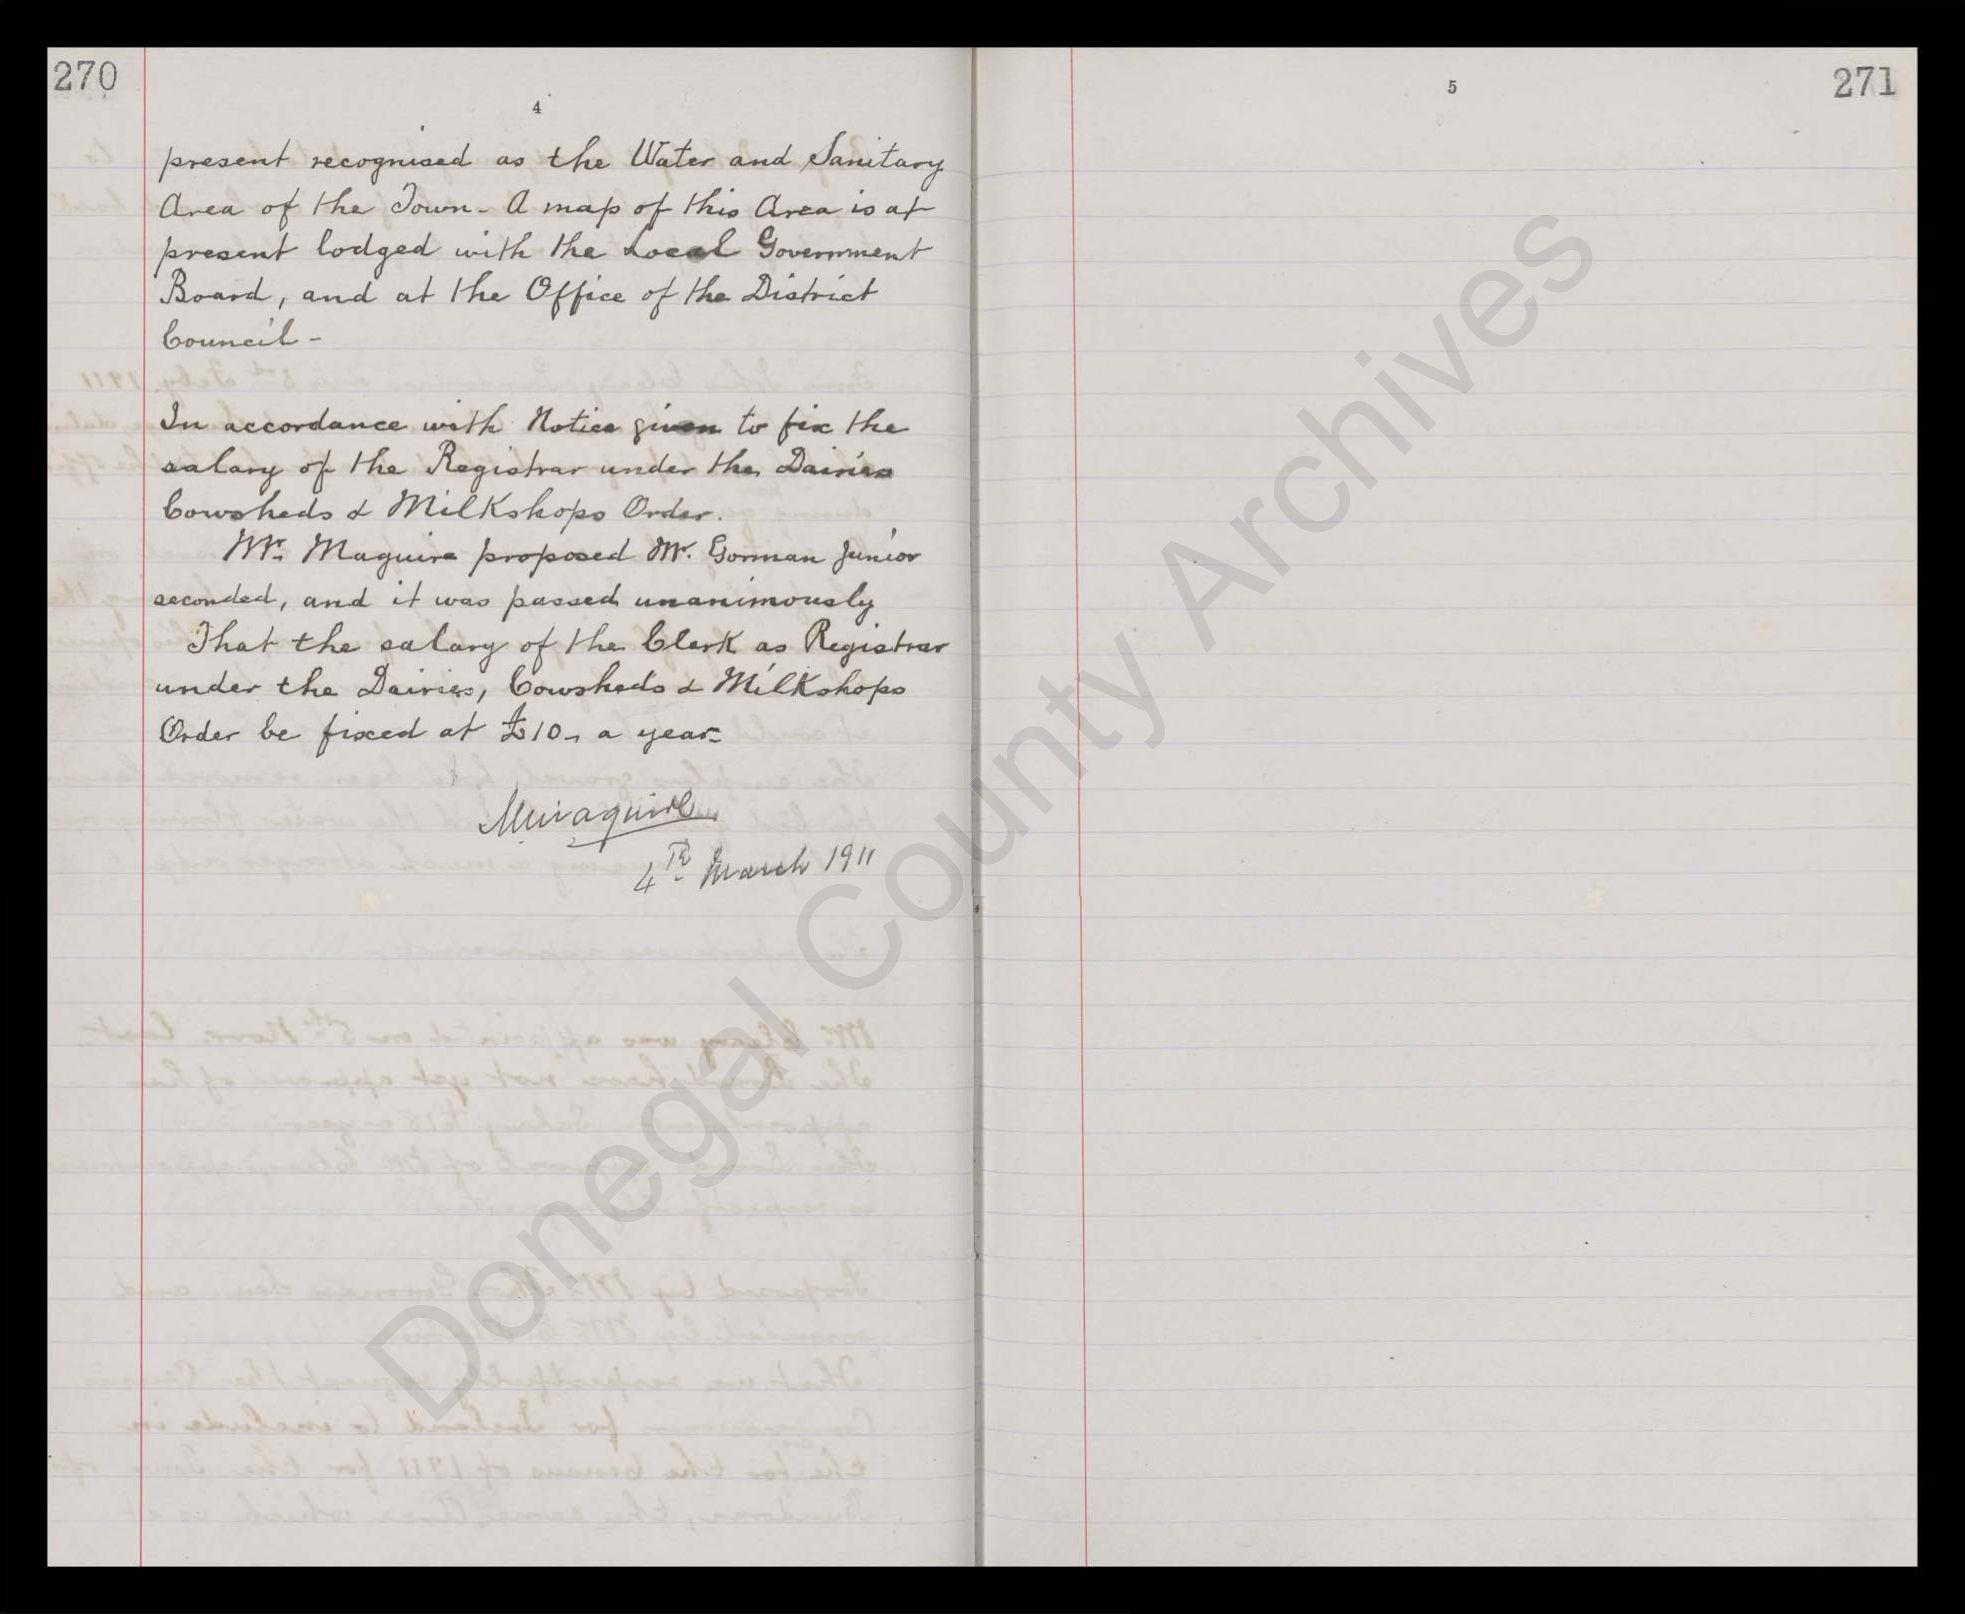 270
4
present recognised as the Water and Sanitary
Area of the Town - A map of this Area is at
present lodged with the Local Government
Board, and at the Office of the District
Council -
In accordance with Notice given to fix the
salary of the Registrar under the Dairies
Cowsheds & Milkshops Order.
Mr. Maguire proposed Mr. Gorman Junior
seconded, and it was passed unanimously
That the salary of the Clerk as Registrar
under the Dairies, Cowsheds & Milkshops
Order be fixed at £10- a year-
4th March 1911
5
271
Donegal County Archives